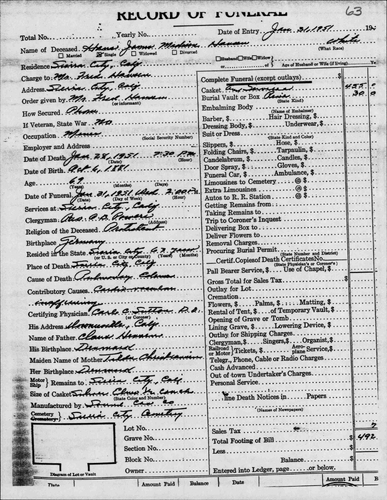 63
RECORD OF FUNERAL
Total No. Yearly No. Date of Entry Jan. 31, 1951 19
Name of Deceased Hans James Hansen White
Single Widowed Divorced Husband Wife Widow
Residence Sierra City, Calif Age of Husband or Wife (if living)
Charge to Mr. Fred Hansen
Address Sierra City, Calif
Order given by Mr. Fred Hansen
How Secured Phone
If Veteran, State War No
Occupation Miner (Social Security Number)
Employer and Address
Date of Death Jan 28, 1951 7:30 P.M.
Date of Birth Oct 6, 1881
Age 69
(Years) (Months) (Days)
Date of Funeral Jan 31, 1951 Wed. 2:00 P.M.
(Date) (Day of Week) (Hour)
Services at Sierra City, Calif
Clergyman Rev.
Religion of the Deceased Protestant
Birthplace Germany
Resided in the State Sierra City
Place of Death Sierra City, Calif
Cause of Death Pulmonary Edema
Contributory Causes
Certifying Physician Carl C. Sutton
His Address Downieville, Calif
Name of Father Claus Hansen
His Birthplace Denmark
Maiden Name of Mother Christiansen
Her Birthplace Denmark
Motor Ship Remains to Sierra City, Calif
Size of Casket
Manufactured by
Cemetery Crematory Sierra City Cemetery
Lot No.
Grave No.
Section No.
Block No.
Owner
Diagram of Lot or Vault
Complete Funeral (except outlays) $
Casket 455
Burial Vault or Box 30
(State Kind)
Embalming Body
(Name of Embalmer)
Barber, $ Hair Dressing, $
Dressing Body, $ Underwear, $
Suit or Dress
(State Kind and Color)
Slippers, $ Hose, $
Folding Chairs, $ Tarpaulin, $
Candelabrum, $ Candles, $
Door Spray, $ Gloves, $
Funeral Car, $ Ambulance, $
Limousines to Cemetery @ $
Extra Limousines @ $
Autos to R. R. Station @ $
Getting Remains from
Taking Remains to
Trip to Coroner's Inquest
Delivering Box to
Deliver Flowers to
Removal Charges
Procuring Burial Permit
(State Number and District)
Certif. Copies of Death Certificates No.
(State Physician's or Coroner's)
Pall Bearer Service, $ Use of Chapel, $
Gross Total for Sales Tax $
Outlay for Lot
Cremation
Flowers, $ Palms, $ Matting, $
Rental of Tent, $ of Temporary Vault, $
Opening of Grave or Tomb
Lining Grave, $ Lowering Device, $
Outlay for Shipping Charges
Clergyman, $ Singers, $ Organist, $
Railroad or Motor Tickets, $ Aeroplane Service, $
Telegr., Phone, Cable or Radio Charges
Cash Advanced
Out of town Undertaker's Charges
Personal Service
Line Death Notices in Papers
(Names of Newspapers)
Sales Tax 7
Total Footing of Bill $ 492
Less
Balance $
Entered into Ledger, page or below.
Date Amount Paid Balance Date Amount Paid Balance